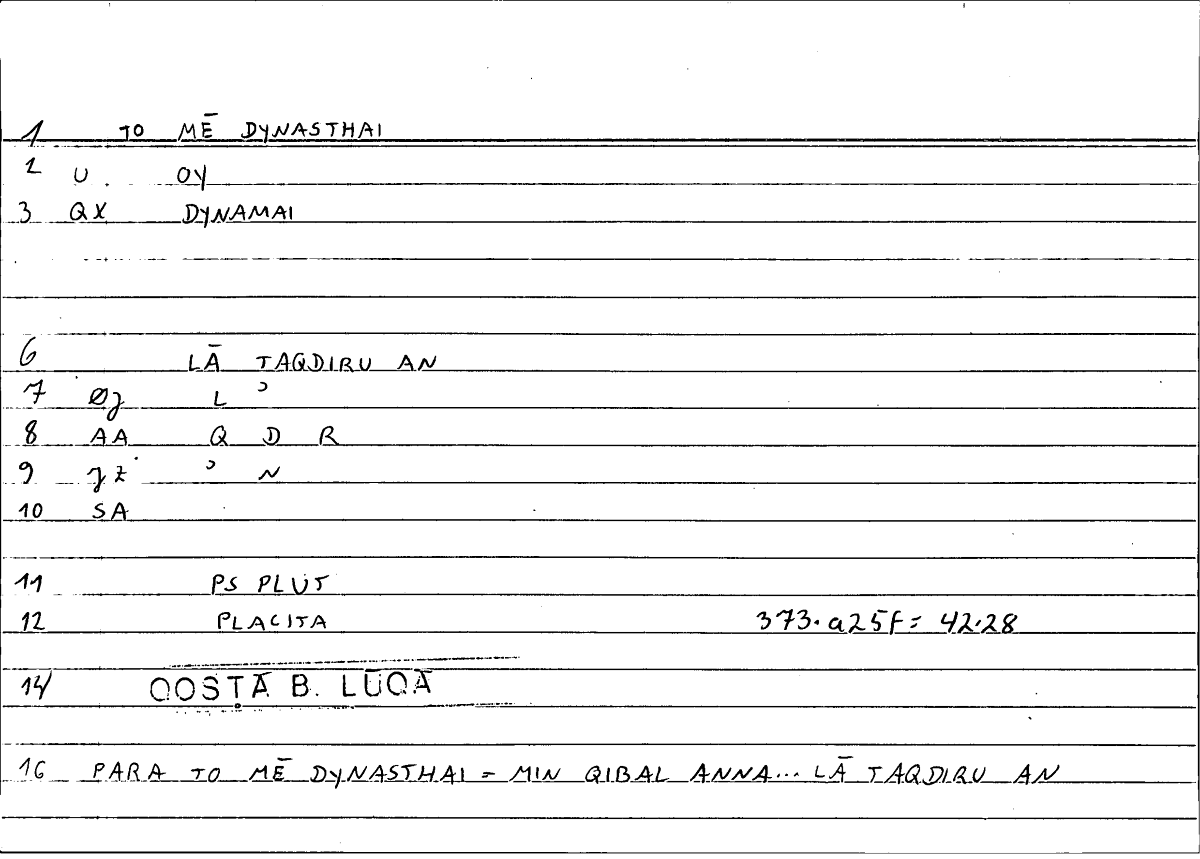 1 TO MĒ DYNASTHAI
2 U. OY
3 QX DYNAMAI
6 LĀ TAQDIRU AN
7 Øʒ L ʾ
8 AA Q D R
9 ʒZ ʾ N
10 SA
11 PS PLUT
12 PLACITA 373.a25f= 42.28
14 QOSṬĀ B. LŪQĀ
16 PARA TO MĒ DYNASTHAI = MIN QIBAL ANNA... LĀ TAQDIRU AN